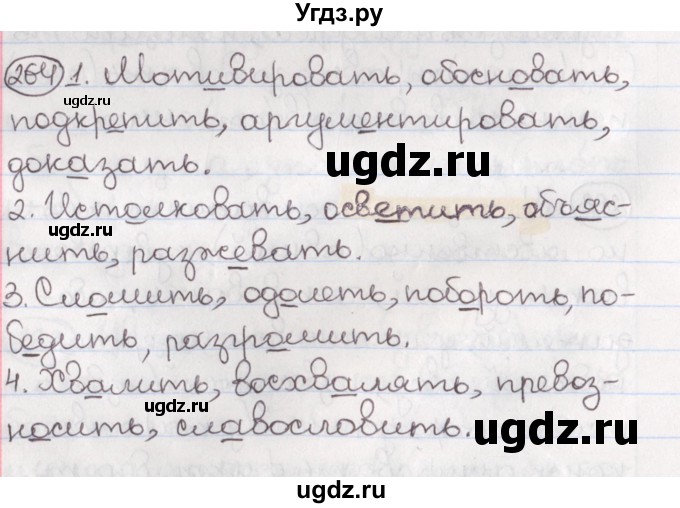 Угдз.ру
264 1. Мотивировать, обосновать,
подкрепить, аргументировать,
доказать.
2. Истолковать, осветить, объяс-
нить, разжевать.
3. Сломить, одолеть, побороть, по-
бедить, разгромить.
4. Хвалить, восхвалять, превоз-
носить, славословить.
ugdz.ru
ugdz.ru
ugdz.ru
ugdz.ru
ugdz.ru
ugdz.ru
ugdz.ru